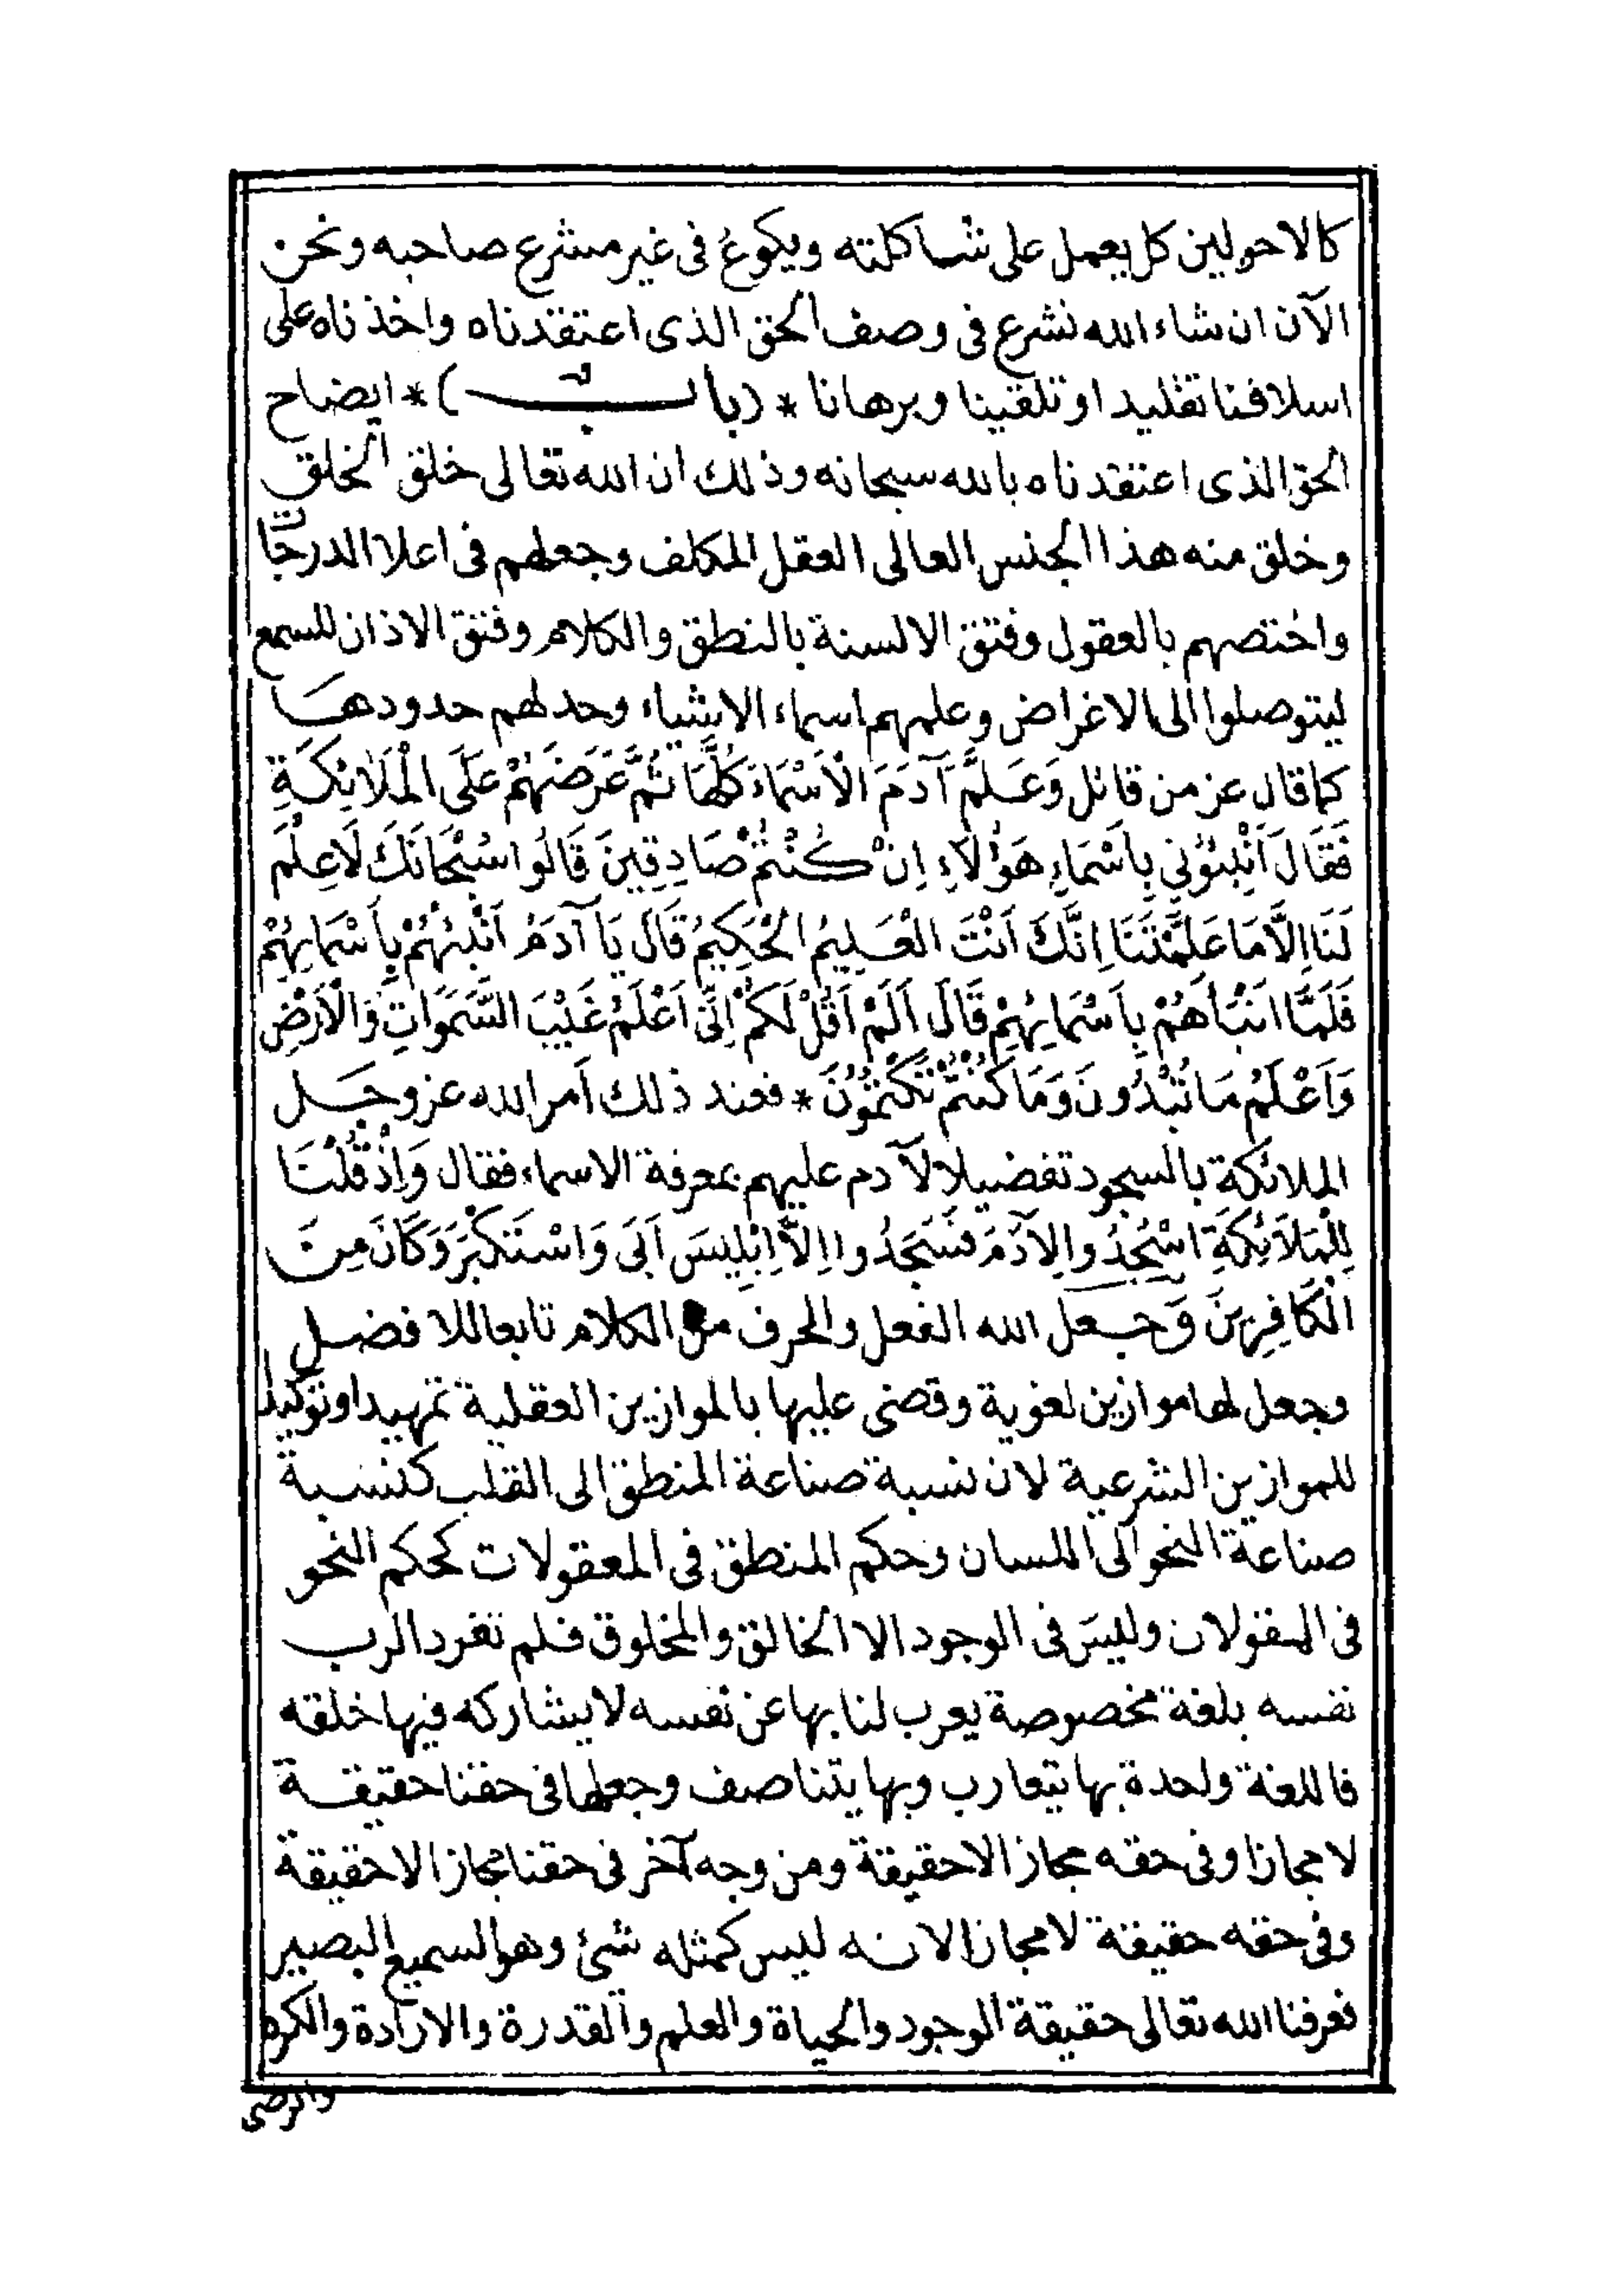 كالاحولين كل يعمل على شاكلته ويكوع فى غير مشرع صاحبه ونحن
الآن ان شاء الله نشرع فى وصف الحق الذى اعتقدناه واخذناه على
اسلافنا تقليد او تلقينا وبرهانا * (باب) * ايضاح
الحق الذى اعتقدناه بالله سبحانه وذلك ان الله تعالى خلق الخلق
وخلق منه هذا الجنس العالى العقل المكلف وجعلهم فى اعلا الدرجات
واختصهم بالعقول وفتق الالسنة بالنطق والكلام وفتق الاذان للسمع
ليتوصلوا الى الاغراض وعلمهم اسماء الاشياء وحد لهم حدودها
كما قال عز من قائل وَعَلَّمَ آدَمَ الْاَسْمَاءَ كُلَّهَا ثُمَّ عَرَضَهُمْ عَلَى الْمَلَائِكَةِ
فَقَالَ اَنْبِئُونِي بِاَسْمَاءِ هَؤُلَاءِ اِنْ كُنْتُمْ صَادِقِينَ قَالُوا سُبْحَانَكَ لَا عِلْمَ
لَنَا اِلَّا مَا عَلَّمْتَنَا اِنَّكَ اَنْتَ الْعَلِيمُ الْحَكِيمُ قَالَ يَا آدَمُ اَنْبِئْهُمْ بِاَسْمَائِهِمْ
فَلَمَّا اَنْبَأَهُمْ بِاَسْمَائِهِمْ قَالَ اَلَمْ اَقُلْ لَكُمْ اِنِّى اَعْلَمُ غَيْبَ السَّمَوَاتِ وَالْاَرْضِ
وَاَعْلَمُ مَا تُبْدُونَ وَمَا كُنْتُمْ تَكْتُمُونَ * فعند ذلك اَمر الله عز وجَل
الملائكة بالسجود تفضيلا لآدم عليهم بمعرفة الاسماء فقال وَاِذْ قُلْنَا
لِلْمَلَائِكَةِ اسْجُدُوا لِآدَمَ فَسَجَدُوا اِلَّا اِبْلِيسَ اَبَى وَاسْتَكْبَرَ وَكَانَ مِنَ
الْكَافِرِينَ وَجعل الله الفعل والحرف من الكلام تابعا للافضل
وجعل لها موازين لغوية وقضى عليها بالموازين العقلية تمهيدا وتوكيدا
للموازين الشرعية لان نسبة صناعة المنطق الى القلب كنسبة
صناعة النحو الى اللسان وحكم المنطق فى المعقولات كحكم النحو
فى المقولات وليس فى الوجود الا الخالق والمخلوق فلم تفرد الرب
نفسه بلغة مخصوصة يعرب لنا بها عن نفسه لا يشاركه فيها خلقه
فاللغة واحدة بها يتعارب وبها يتناصف وجعلها فى حقنا حقيقة
لا مجازا وفى حقه مجازا لا حقيقة ومن وجه آخر فى حقنا مجازا لا حقيقة
وفى حقه حقيقة لا مجازا لانه ليس كمثله شئ وهو السميع البصير
نعرفنا الله تعالى حقيقة الوجود والحياة والعلم والقدرة والارادة والكره
والرضى